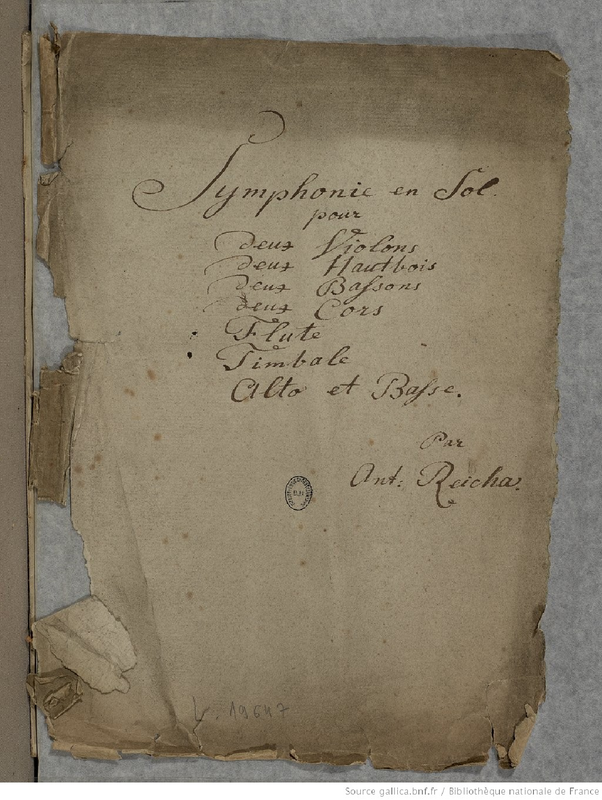 Symphonie en Sol.
pour
deux Violons
deux Hautbois
deux Baſsons
deux Cors
Flute
Timbale
Alto et Baſse.
Par
Ant: Reicha.
L. 19647
Source gallica.bnf.fr / Bibliothèque nationale de France